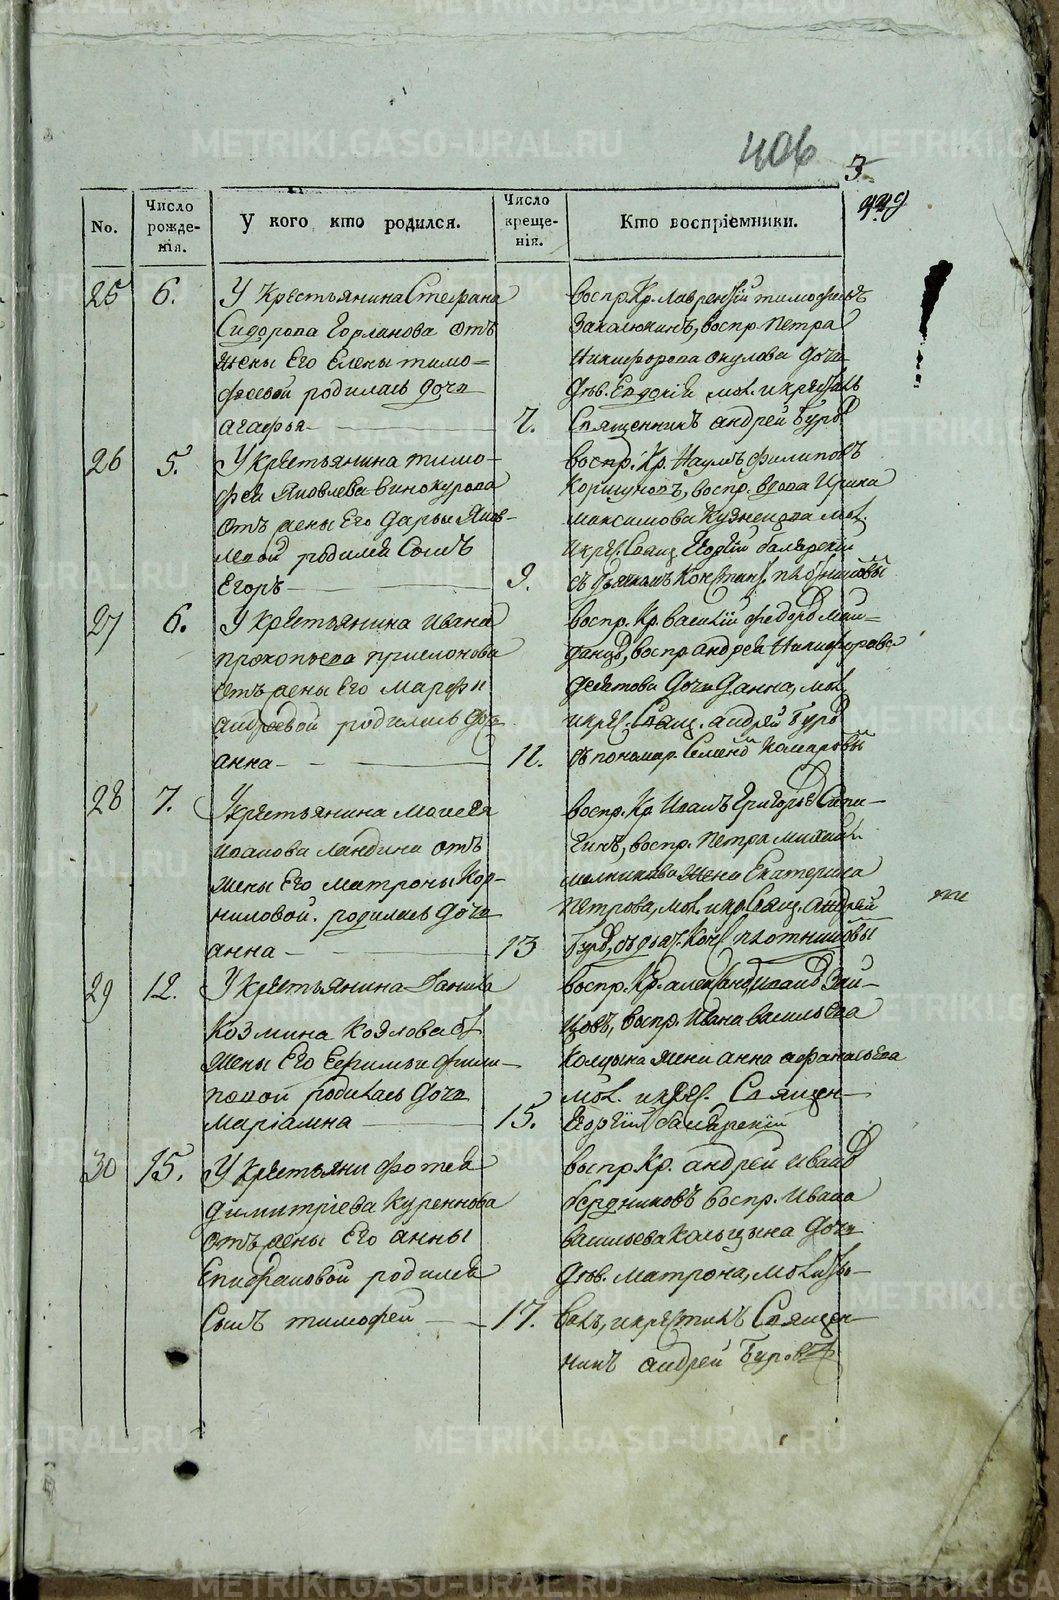 406
3
449
No.
Число рожде-нія.
У кого кто родился.
Число креще-нія.
Кто воспріемники.
25 6. У Крестьянина Стефана
Сидорова Горланова отъ
жены Его Елены тимо=
феевой родилась дочь
агафья 7.
воспр. Кр. Лаврентій тимофеевъ
воспр. Петра
Никифорова окулова дочь
дѣв. Евдокія мол. и крестилъ
Священникъ андрей Буровъ
26 5. У крестьянина тимо-
фея Яковлева винокурова
отъ жены Его Дарьи Яков-
левой родился Сынъ
Егоръ 9.
воспр. Кр. Наумъ филиповъ
Коршуновъ, воспр. вдова Ирина
максимова Кузнецова мол.
и крес. Свящ. Георгій
съ дьячкомъ Констант. плотниковы
27 6. У крестьянина Ивана
прокопьева
отъ жены Его Марфы
андреевой родилась дочь
анна 11.
воспр. Кр. василій федоровъ Май=
дановъ, воспр. андрея Никифорова
дочь Д. анна, мол.
и крес. Свящ. андрей Буровъ
съ пономар. Семеномъ Комаровы
28 7. У крестьянина Моисея
иванова ландина отъ
жены Его матроны Кор-
ниловой родилась дочь
анна 13
воспр. Кр. Иванъ Григорьевъ
воспр. Петра михайл.
мельникова жена Екатерина
Петрова, мол. и кр. Свящ. андрей
Буровъ, съ дьяч. Конс. плотниковы
29 12. У крестьянина Данила
Козмина Козлова отъ
жены Его Евфимьи фили-
повой родилась дочь
маріамна 15.
воспр. Кр. александръ ивановъ Зай-
цовъ, воспр. Ивана васильева
Колцына жена анна афанасьева
мол. и крес. Священ-
Георгій
30 15. У Крестьяни фотея
димитріева Куреннова
отъ жены Его анны
Епифановой родился
Сынъ тимофей 17.
воспр. Кр. андрей ивановъ
бердниковъ воспр. Ивана
васильева Кальцына дочь
дѣв. матрона, молитво-
валъ, и крестилъ Священ-
никъ андрей Буровъ
METRIKI.GASO-URAL.RU